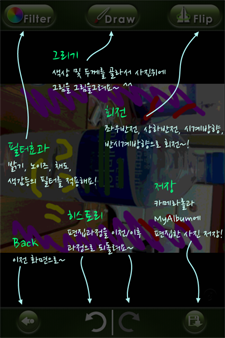 Filter
Draw
Flip
그리기
색상 및 두께를 골라서 사진위에
그림을 그린답니다~ ^^
회전
좌우반전, 상하반전, 시계방향,
반시계방향으로 회전~!
필터효과
밝기, 노이즈, 채도,
색감등의 필터를 적용해요!
저장
카메라롤과
MyAlbum에
편집한 사진 저장!
히스토리
편집과정을 이전/이후
과정으로 되돌려요~
Back
이전 화면으로~